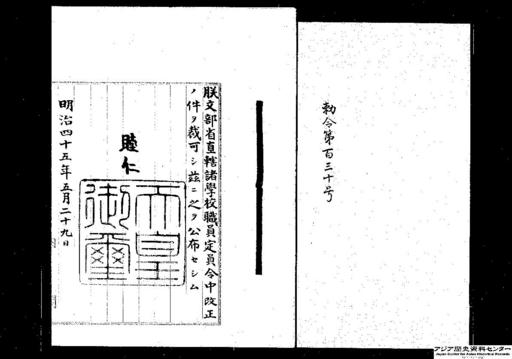 勅令第百三十号
朕文部省直轄諸学校職員定員令中改正
ノ件ヲ裁可シ茲ニ之ヲ公布セシム
睦仁
天皇御璽
明治四十五年五月二十九日
アジア歴史資料センター
Japan Center for Asian Historical Records